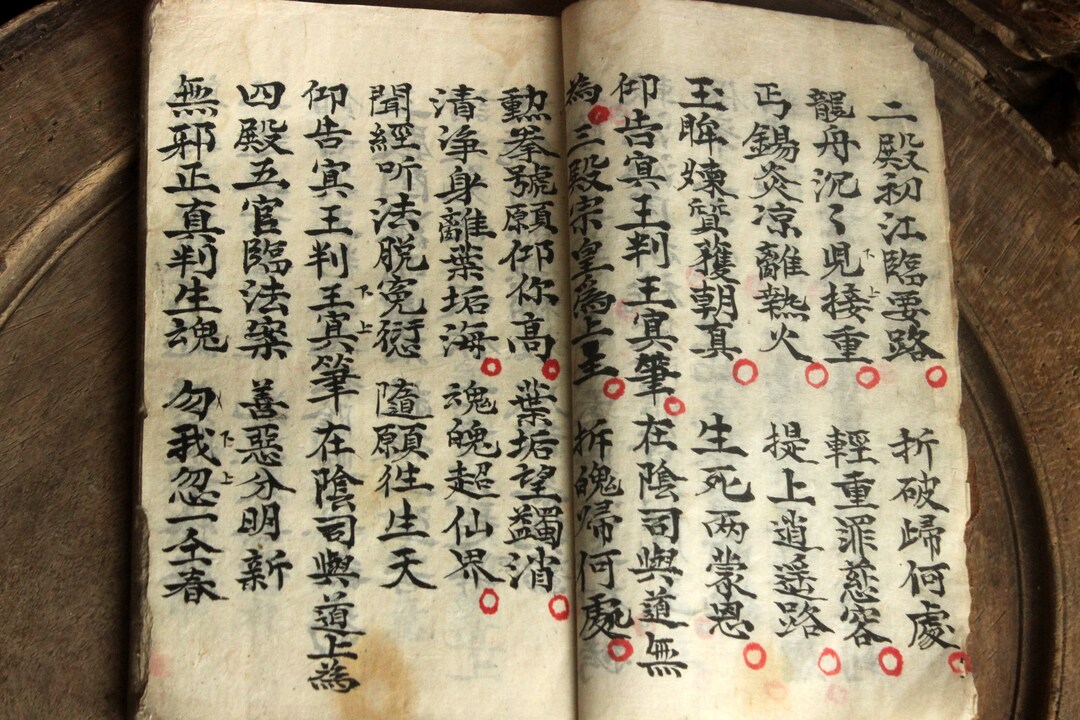 二殿初江臨要路　折破歸何處
龍舟沉〻見接重　輕重罪慈容
丐錫炎凉離熱火　提上逍遥路
玉眸煉質獲朝真　生死两蒙恩
仰告寘王判王寘筆在陰司與道無
為三殿宗皇為上王　拆魄歸何處
勲峯號願仰你高　葉垢望蠲消
清浄身離葉垢海　魂魄超仙界
聞經听法脱寃愆　隨願徃生天
仰告寘王判王寘筆在陰司與道上為
四殿五官臨法案　善惡分明新
無邪正真判生魂　勿我忽一千春